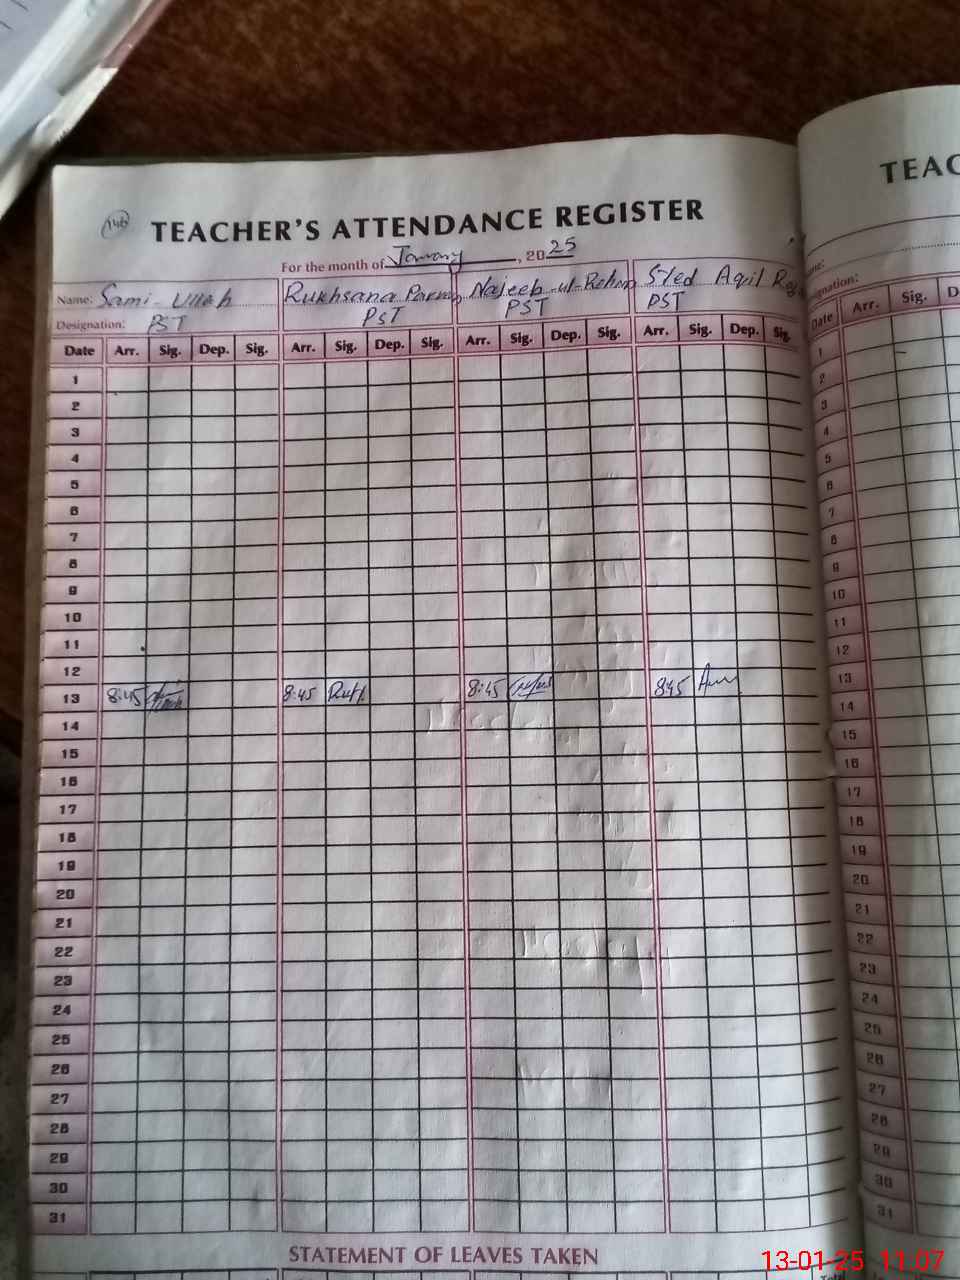 146
TEACHER'S ATTENDANCE REGISTER
For the month of January, 2025
Name: Sami-Ullah Rukhsana Parveen Najeeb-ul-Rehman Syed Aqil
Designation: PST PST PST PST
Date Arr. Sig. Dep. Sig. Arr. Sig. Dep. Sig. Arr. Sig. Dep. Sig. Arr. Sig. Dep. Sig.
1
2
3
4
5
6
7
8
9
10
11
12
13 8:45 8:45 8:45 8:45
14
15
16
17
18
19
20
21
22
23
24
25
26
27
28
29
30
31
STATEMENT OF LEAVES TAKEN
TEAC
Date Arr. Sig. D
1
2
3
4
5
6
7
8
9
10
11
12
13
14
15
16
17
18
19
20
21
22
23
24
25
26
27
28
29
30
31
13-01-25 11:07